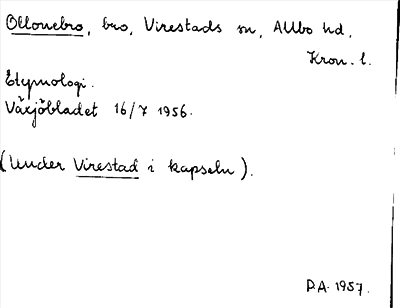 Ollonebro, bro, Virestads sn, Allbo hd,
Kron. l.
Etymologi.
Växjöbladet 16/7 1956.
(Under Virestad i kapseln).
P.A. 1957.